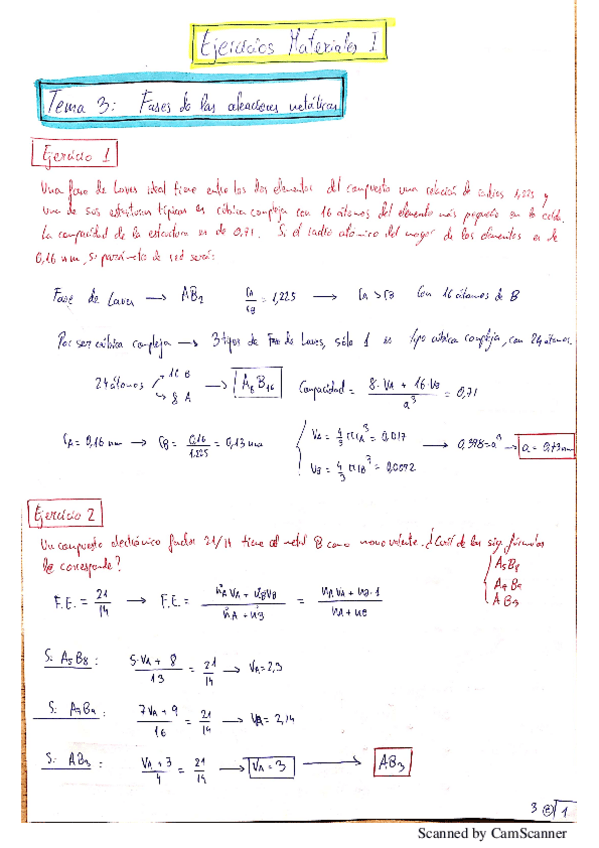 Ejercicios Materiales I
Tema 3: Fases de las aleaciones metálicas
Ejercicio 1
Una fase de Laves ideal tiene entre los dos elementos del compuesto una relación de radios 1,225 y
una de sus estructuras típicas es cúbica compleja con 16 átomos del elemento más pequeño en la celda.
La compacidad de la estructura es de 0,71. Si el radio atómico del mayor de los elementos es de
0,16 nm, su parámetro de red será:
Fase de Laves → AB2 rA/rB = 1,225 → rA > rB Con 16 átomos de B
Por ser cúbica compleja → 3 tipos de Fase de Laves, sólo 1 es tipo cúbica compleja, con 24 átomos.
24 átomos 16 B 8 A → A8 B16 Compacidad = (8·VA + 16·VB)/a³ = 0,71
rA = 0,16 nm → rB = 0,16/1,225 = 0,13 nm { VA = 4/3 π rA³ = 0,017 VB = 4/3 π rB³ = 0,0092 → 0,398 = a³ → a = 0,73 nm
Ejercicio 2
Un compuesto electrónico factor 21/14 tiene al metal B como monovalente. ¿Cuál de las sig. fórmulas
le corresponde? { A5B8 A7B9 AB3
F.E. = 21/14 → F.E. = (nA VA + nB VB)/(nA + nB) = (nA VA + nB·1)/(nA + nB)
Si A5B8: (5·VA + 8)/13 = 21/14 → VA = 2,3
Si A7B9: (7VA + 9)/16 = 21/14 → VA = 2,14
Si AB3: (VA + 3)/4 = 21/14 → VA = 3 → AB3
3 1
Scanned by CamScanner